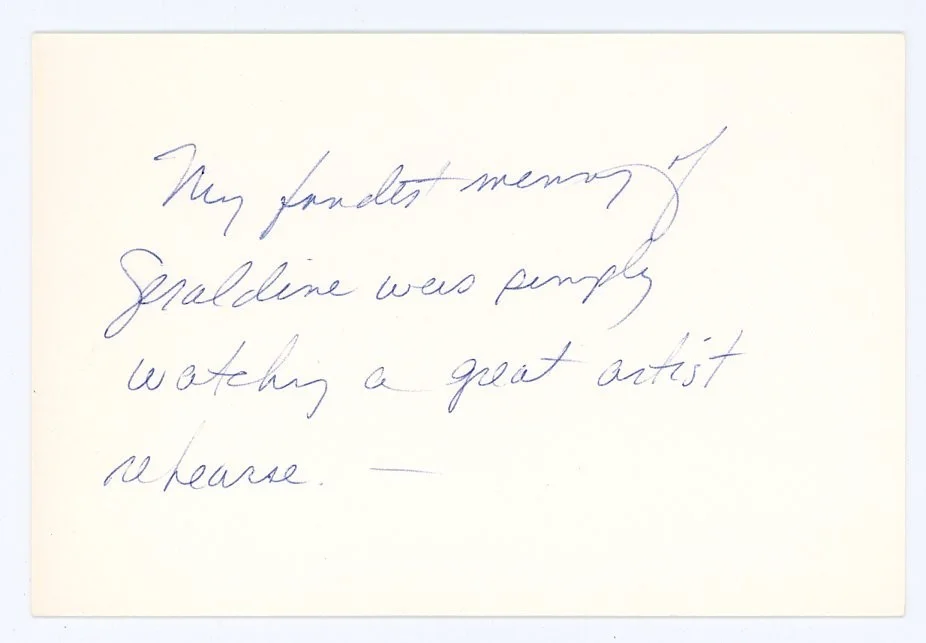 My fondest memory of
Geraldine was simply
watching a great artist
rehearse. —